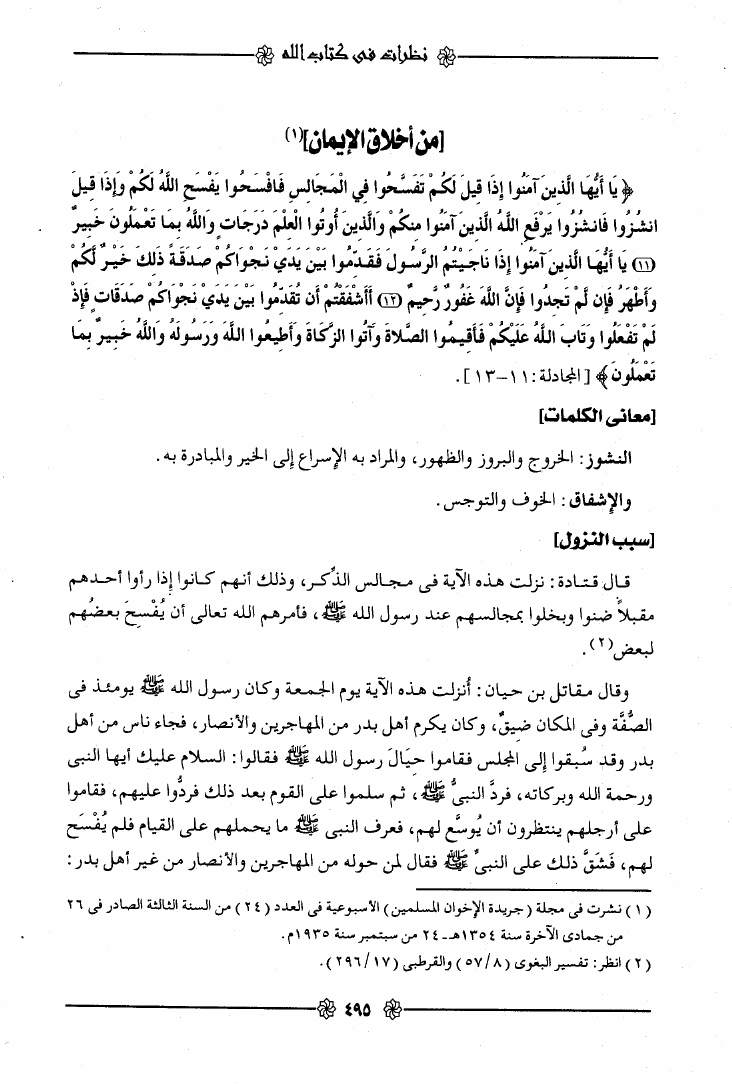 نظرات في كتاب الله
[من أخلاق الإيمان](١)
﴿ يَا أَيُّهَا الَّذِينَ آمَنُوا إِذَا قِيلَ لَكُمْ تَفَسَّحُوا فِي الْمَجَالِسِ فَافْسَحُوا يَفْسَحِ اللَّهُ لَكُمْ وَإِذَا قِيلَ
انشُزُوا فَانشُزُوا يَرْفَعِ اللَّهُ الَّذِينَ آمَنُوا مِنكُمْ وَالَّذِينَ أُوتُوا الْعِلْمَ دَرَجَاتٍ وَاللَّهُ بِمَا تَعْمَلُونَ خَبِيرٌ
(١١) يَا أَيُّهَا الَّذِينَ آمَنُوا إِذَا نَاجَيْتُمُ الرَّسُولَ فَقَدِّمُوا بَيْنَ يَدَيْ نَجْوَاكُمْ صَدَقَةً ذَلِكَ خَيْرٌ لَّكُمْ
وَأَطْهَرُ فَإِن لَّمْ تَجِدُوا فَإِنَّ اللَّهَ غَفُورٌ رَّحِيمٌ (١٢) أَأَشْفَقْتُمْ أَن تُقَدِّمُوا بَيْنَ يَدَيْ نَجْوَاكُمْ صَدَقَاتٍ فَإِذْ
لَمْ تَفْعَلُوا وَتَابَ اللَّهُ عَلَيْكُمْ فَأَقِيمُوا الصَّلاةَ وَآتُوا الزَّكَاةَ وَأَطِيعُوا اللَّهَ وَرَسُولَهُ وَاللَّهُ خَبِيرٌ بِمَا
تَعْمَلُونَ ﴾ [ المجادلة: ١١–١٣ ] .
[معانى الكلمات]
النشوز: الخروج والبروز والظهور، والمراد به الإسراع إلى الخير والمبادرة به.
والإشفاق: الخوف والتوجس.
[سبب النزول]
قال قتادة: نزلت هذه الآية فى مجالس الذِّكر، وذلك أنهم كانوا إذا رأوا أحدهم
مقبلاً ضنوا وبخلوا بمجالسهم عند رسول الله ﷺ، فأمرهم الله تعالى أن يُفْسِحَ بعضُهم
لبعض(٢).
وقال مقاتل بن حيان: أُنزلت هذه الآية يوم الجمعة وكان رسول الله ﷺ يومئذ فى
الصُّفَّة وفى المكان ضيقٌ، وكان يكرم أهل بدر من المهاجرين والأنصار، فجاء ناس من أهل
بدر وقد سُبقوا إلى المجلس فقاموا حِيَالَ رسول الله ﷺ فقالوا: السلام عليك أيها النبى
ورحمة الله وبركاته، فردَّ النبىُّ ﷺ، ثم سلموا على القوم بعد ذلك فردُّوا عليهم، فقاموا
على أرجلهم ينتظرون أن يُوسَّع لهم، فعرف النبى ﷺ ما يحملهم على القيام فلم يُفْسَح
لهم، فَشَقَّ ذلك على النبىِّ ﷺ فقال لمن حوله من المهاجرين والأنصار من غير أهل بدر:
(١) نشرت فى مجلة (جريدة الإخوان المسلمين) الأسبوعية فى العدد (٢٤) من السنة الثالثة الصادر فى ٢٦
من جمادى الآخرة سنة ١٣٥٤هـ - ٢٤ من سبتمبر سنة ١٩٣٥م.
(٢) انظر: تفسير البغوى (٥٧/٨) والقرطبى (٢٩٦/١٧).
٤٩٥